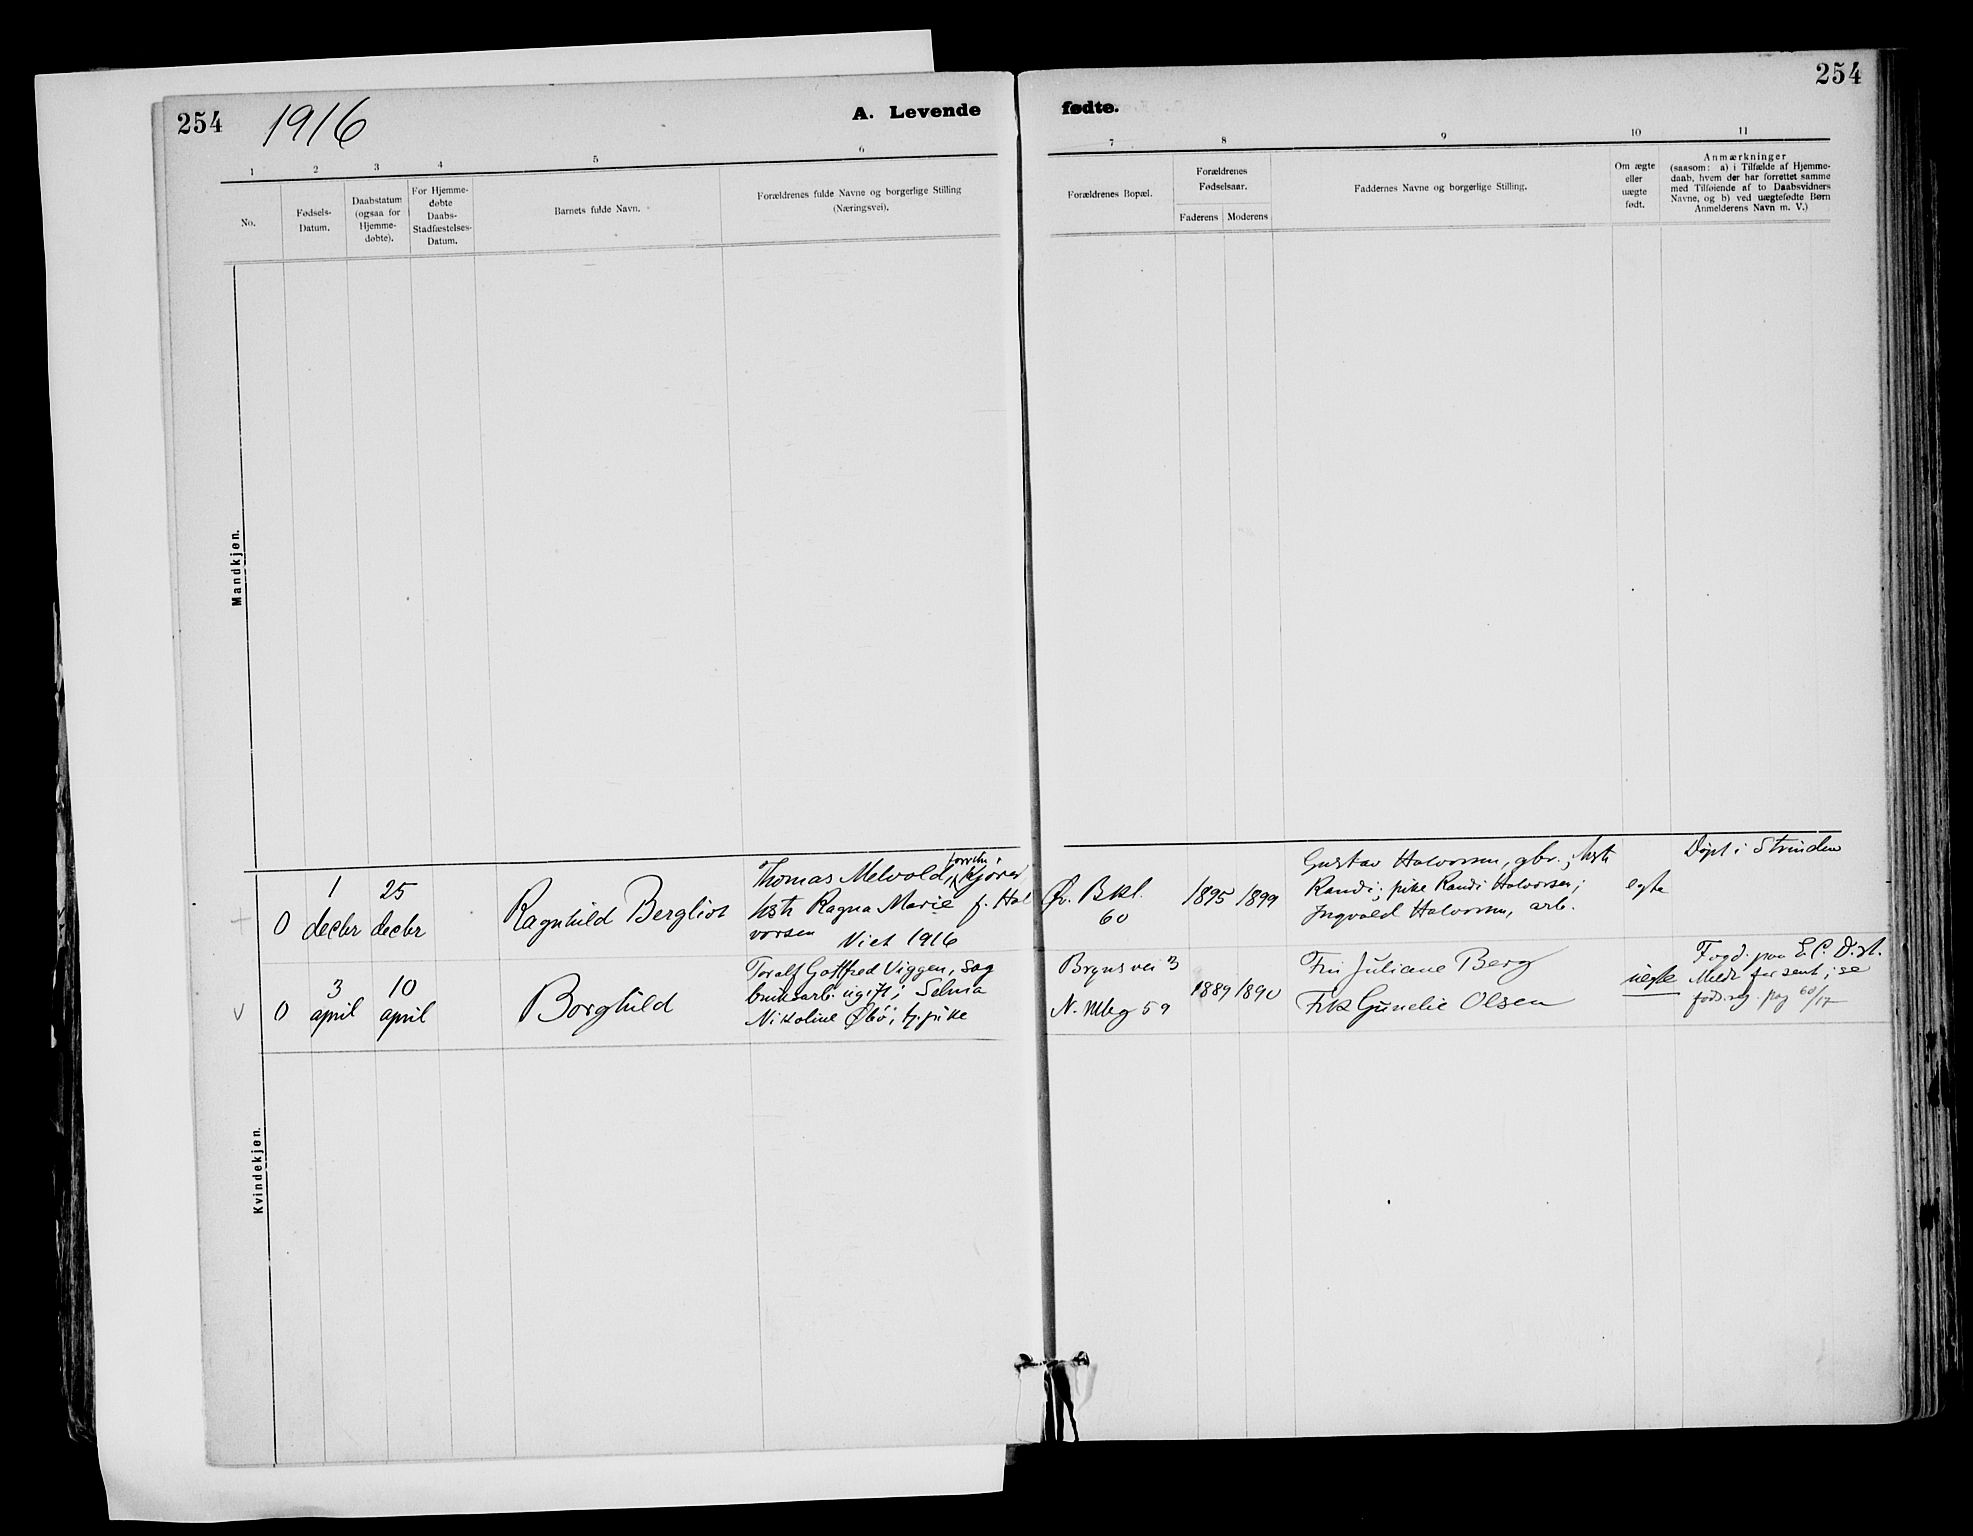 254
1916
A. Levende
fødte.
254
1 2 3 4 5 6 7 8 9 10 11
No.
Fødsels-
Datum.
Daabstatum
(ogsaa for
Hjemme-
døbte).
For Hjemme-
døbte
Daabs-
Stadfæstelses-
Datum.
Barnets fulde Navn.
Forældrenes fulde Navne og borgerlige Stilling
(Næringsvei).
Forældrenes Bopæl.
Forældrenes
Fødselsaar.
Faderens Moderens
Faddernes Navne og borgerlige Stilling.
Om ægte
eller
uægte
født.
Anmærkninger
(saasom: a) i Tilfælde af Hjemme-
daab, hvem der har forrettet samme
med Tilføiende af to Daabsvidners
Navne, og b) ved uægtefødte Børn
Anmelderens Navn m. V.)
Mandkjøn.
Kvindekjøn.
0
1
decbr
25
decbr
Ragnhild Bergliot
Thomas Melvold, kjører
hstr Ragna Marie f. Hal
vorsen Viet 1916
Øv. Bkl.
60
1895 1899
Gustav Halvorsen, gbr.; hstr
Randi; pike Randi Halvorsen;
Ingvald Halvorsen, arb.
egte
Døpt i Strinden
v 0
3
april
10
april
Borghild
Toralf Gottfred Viggen, sag
bruksarb. ugift; Selma
Nikoline Øbø, tj.pike
Brynsvei 3
N. Mbg 59
1889 1890
Fru Juliane Berg
Frk Gunelie Olsen
uegte
Fogd. paa E. C. Dist.
Meldt for sent; se
føds.reg. pag 60/17